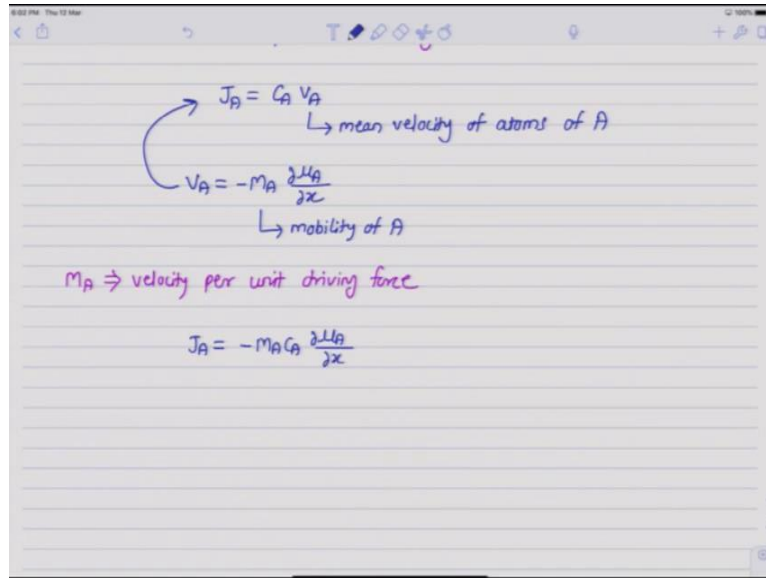 6:02 PM Thu 12 Mar
100%
J_A = C_A V_A
↳ mean velocity of atoms of A
V_A = -M_A ∂μ_A/∂x
↳ mobility of A
M_A ⇒ velocity per unit driving force
J_A = -M_A C_A ∂μ_A/∂x